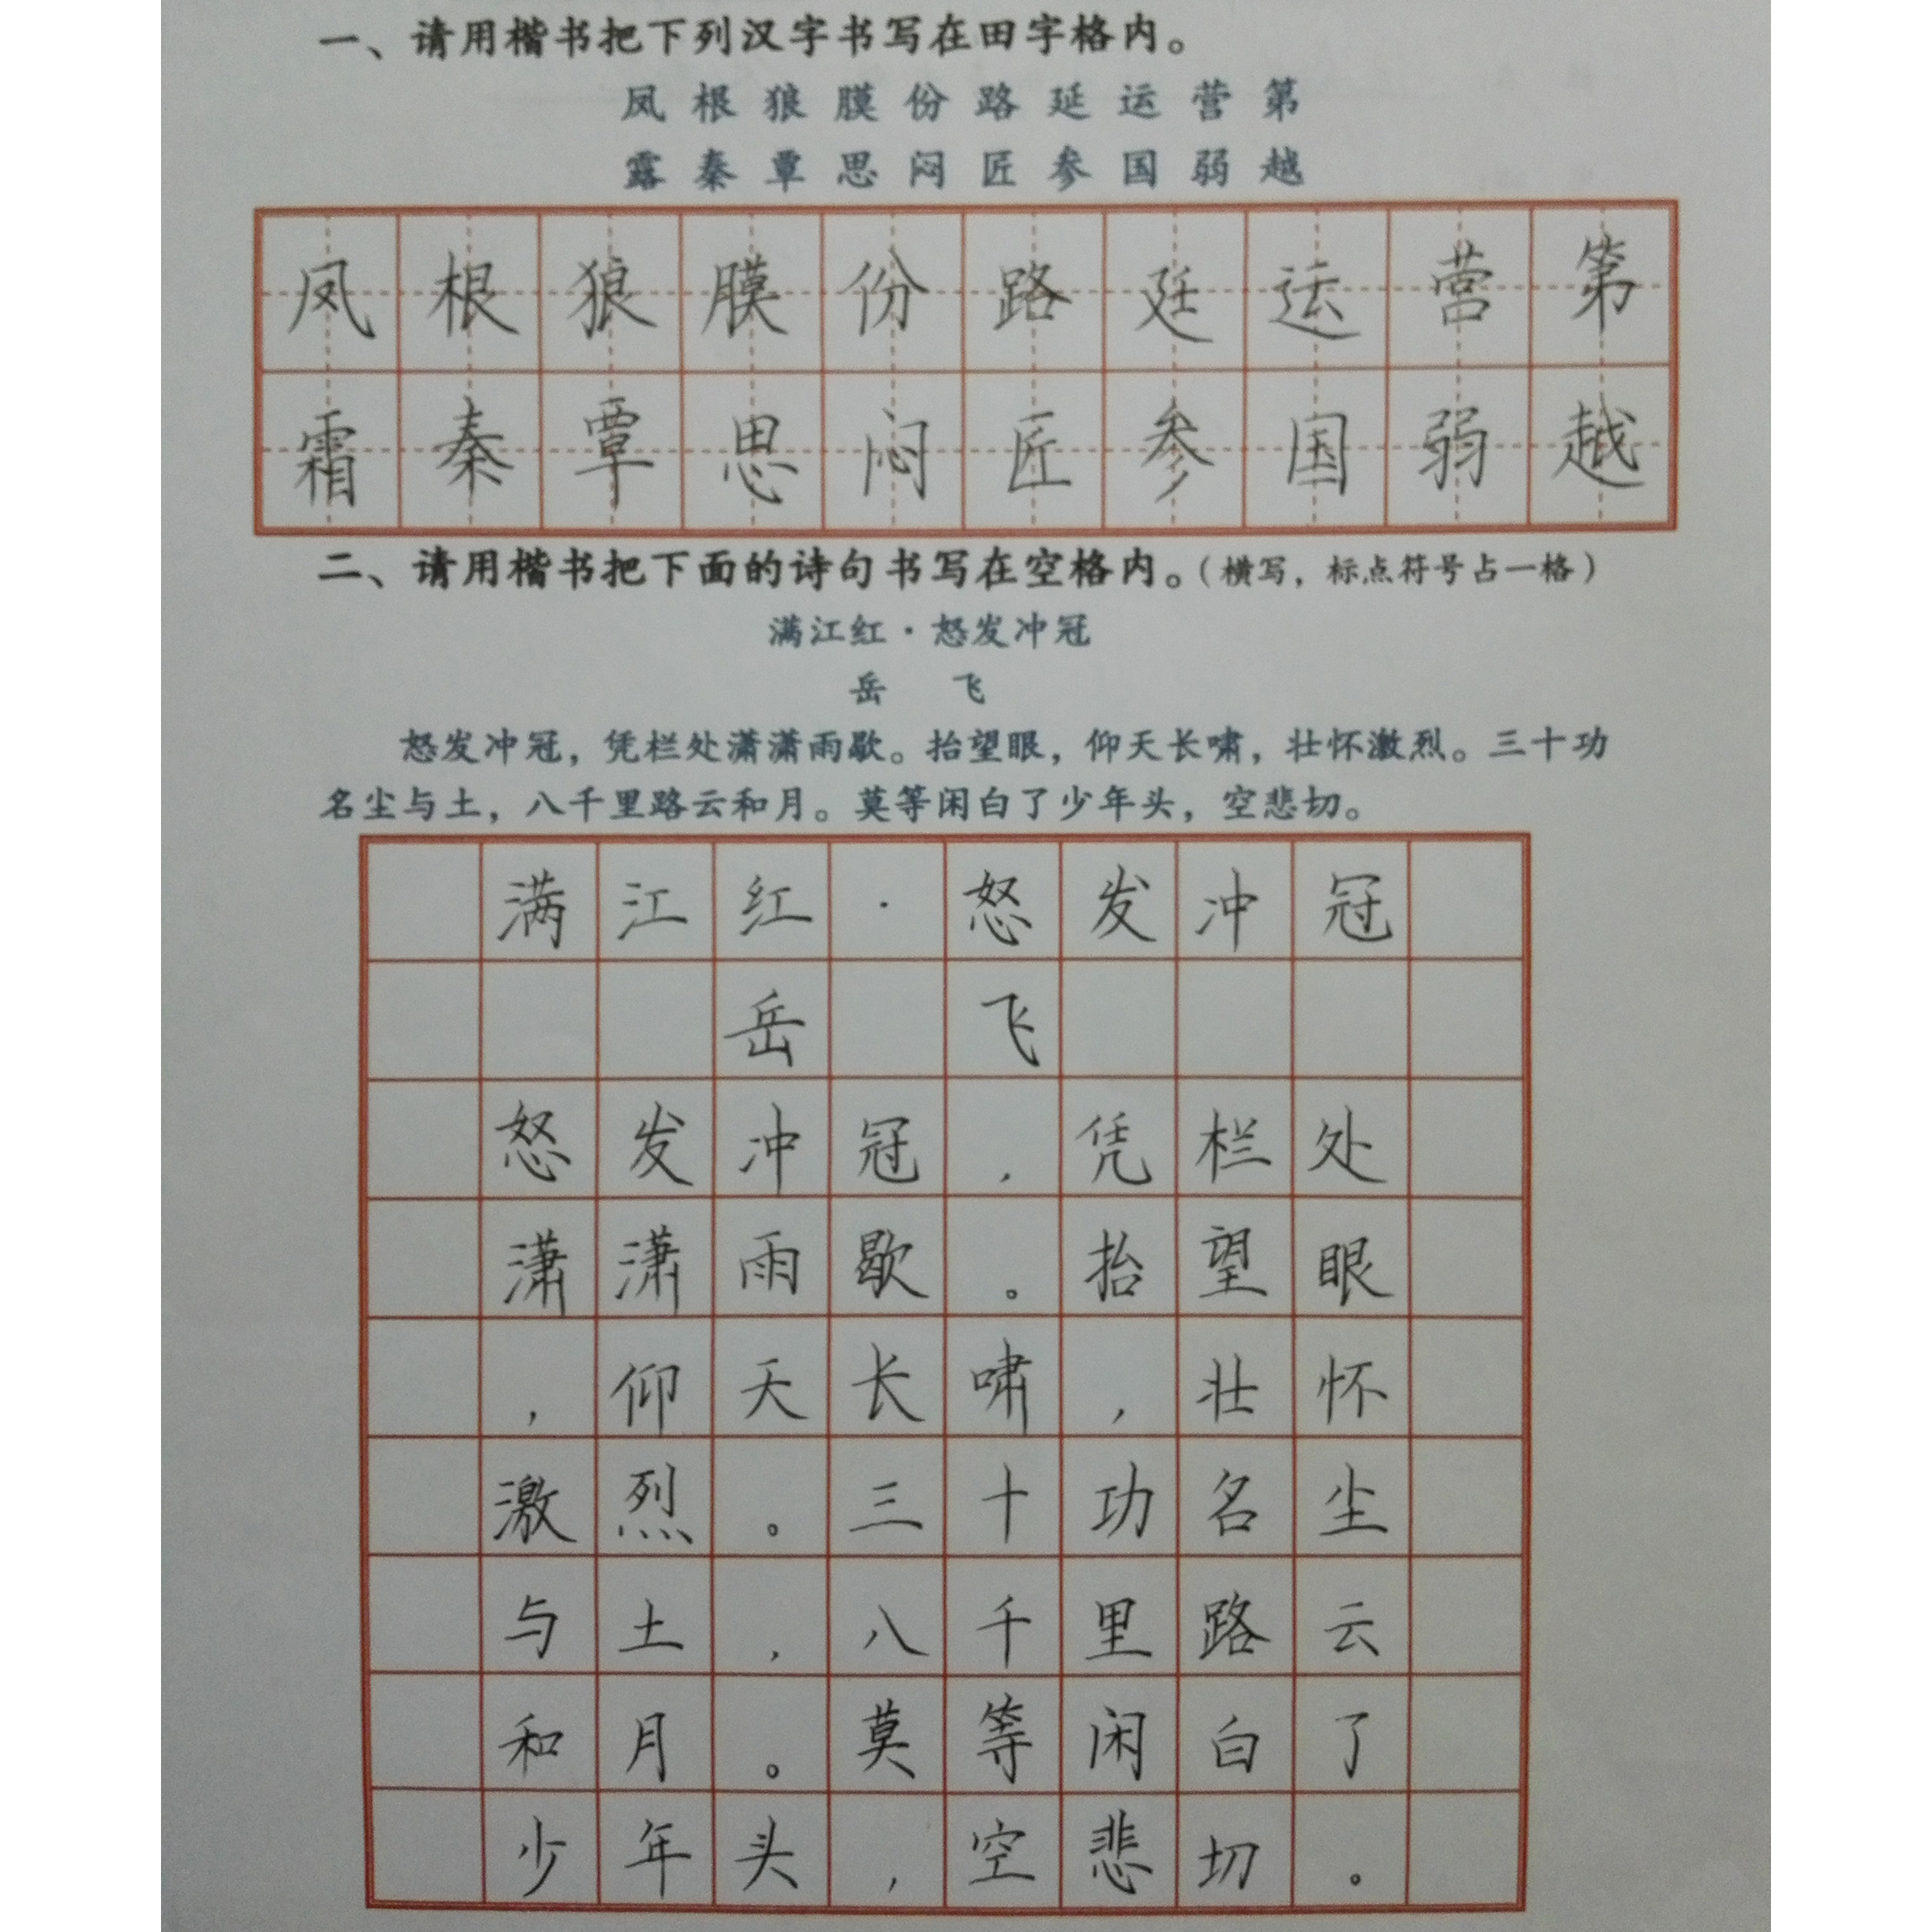 一、请用楷书把下列汉字书写在田字格内。
凤 根 狼 膜 份 路 延 运 营 第
露 秦 覃 思 闷 匠 参 国 弱 越
凤 根 狼 膜 份 路 廷 运 营 第
霜 秦 覃 思 闷 匠 参 国 弱 越
二、请用楷书把下面的诗句书写在空格内。(横写，标点符号占一格)
满江红·怒发冲冠
岳 飞
怒发冲冠，凭栏处潇潇雨歇。抬望眼，仰天长啸，壮怀激烈。三十功
名尘与土，八千里路云和月。莫等闲白了少年头，空悲切。
满江红·怒发冲冠
岳 飞
怒发冲冠，凭栏处
潇潇雨歇。抬望眼
，仰天长啸，壮怀
激烈。三十功名尘
与土，八千里路云
和月。莫等闲白了
少年头，空悲切。